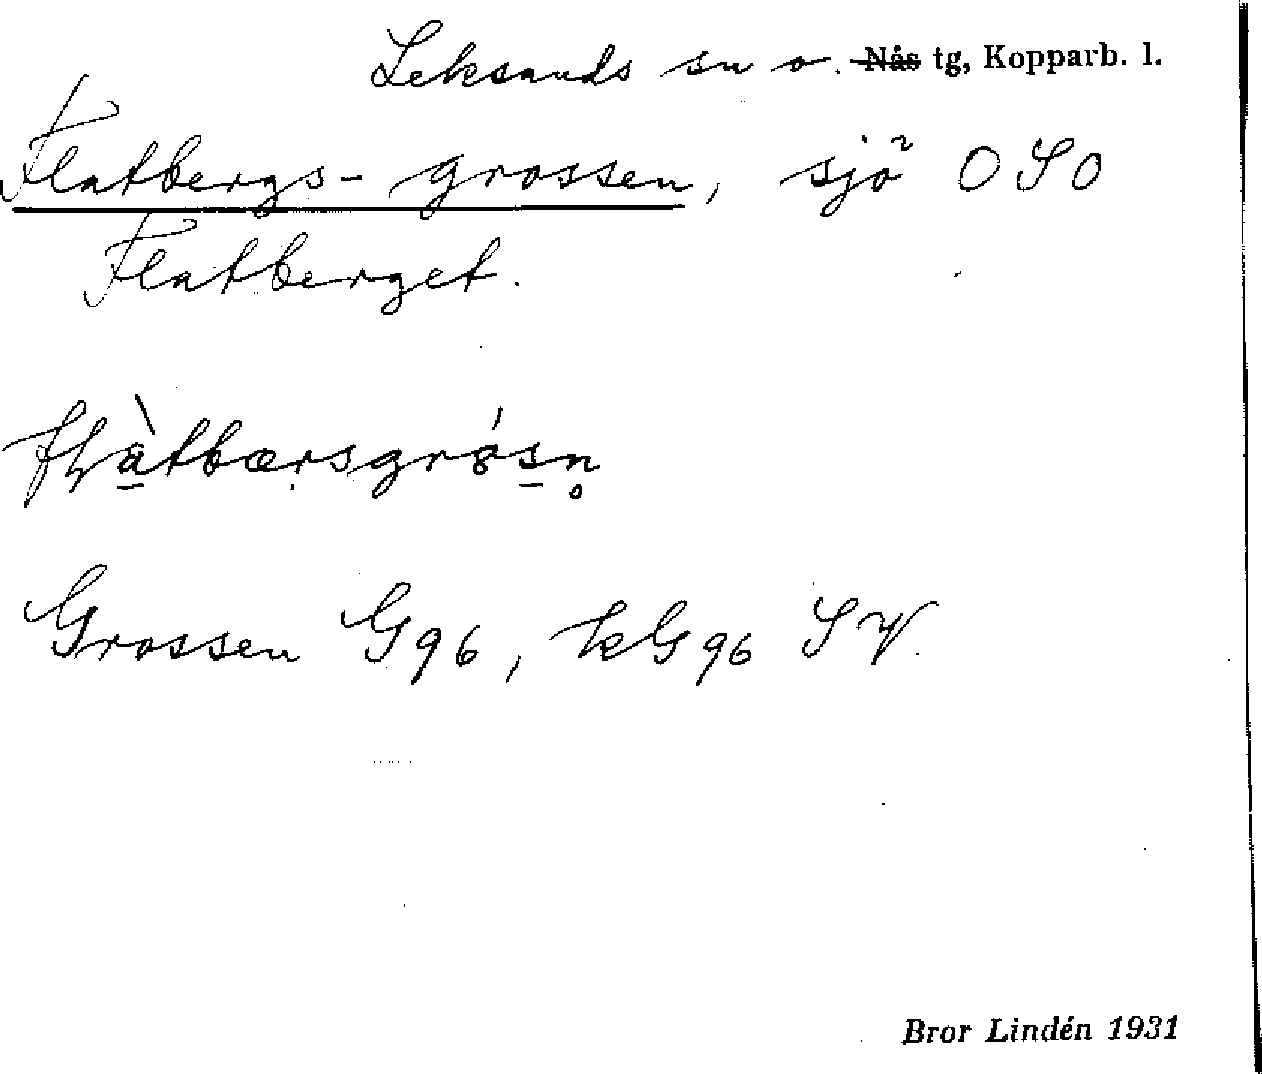 Leksands sn o. Nås tg, Kopparb. l.
Flatbergs-grossen, sjö OSO
Flatberget.
Grossen G96, kG96 SV.
Bror Lindén 1931